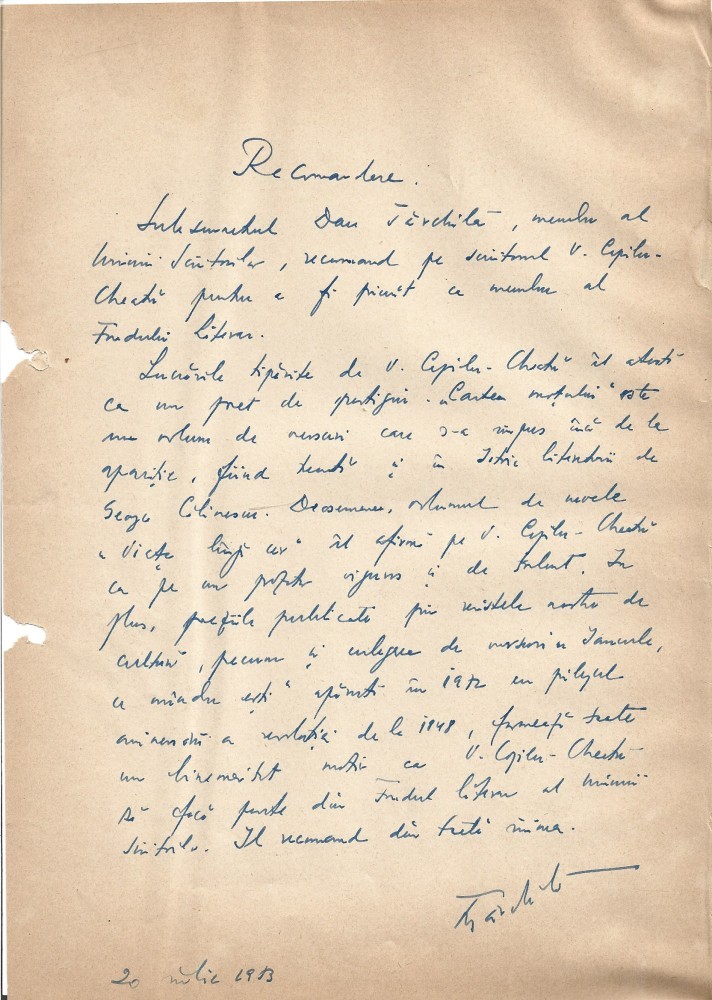 Recomandare.
Subsemnatul Dan Tărchilă, membru al
Uniunii Scriitorilor, recomand pe scriitorul V. Copilu-
Cheatră pentru a fi primit ca membru al
Fondului literar.
Lucrările tipărite de V. Copilu-Cheatră îl atestă
ca un poet de prestigiu. „Cartea moțului" este
un volum de versuri care s-a impus încă de la
apariție, fiind și în Istoria literaturii de
George Călinescu. Deasemenea, volumul de nuvele
„Viața lângă cer" îl afirmă pe V. Copilu-Cheatră
ca pe un prozator viguros și de talent. În
plus, poeziile publicate prin revistele noastre de
cultură, precum și culegerea de versuri „Iancule,
ce mândru ești" apărută în 1972 cu prilejul
aniversării a revoluției de la 1848, formează toate
un binemeritat motiv ca V. Copilu-Cheatră
să facă parte din Fondul literar al Uniunii
Scriitorilor. Îl recomand din toată inima.
Tărchilă
20 iulie 1983